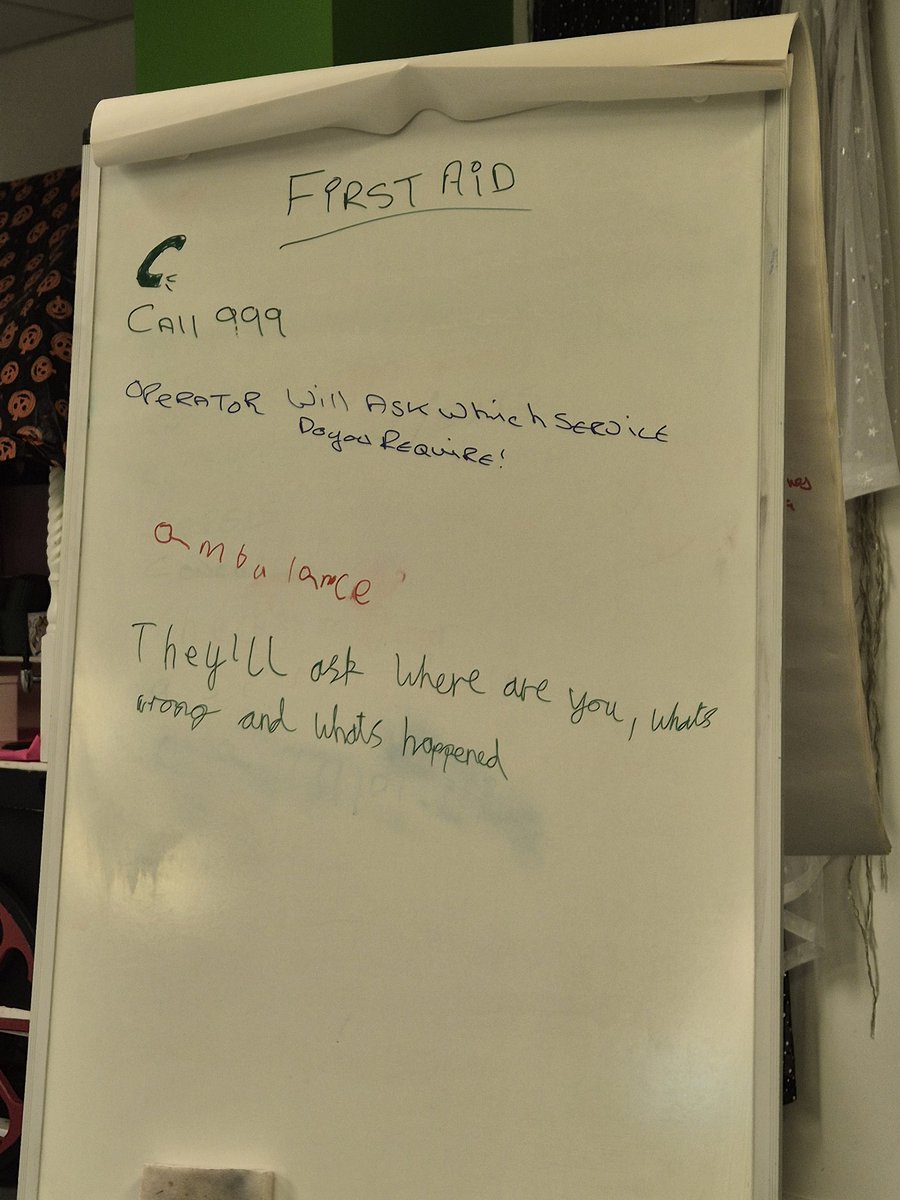 FiRST AiD
CAll 999
OPERATOR Will ASK Which SERVICE
Do you REQUIRE!
ambulance
They'll ask Where are you, whats
wrong and whats happened